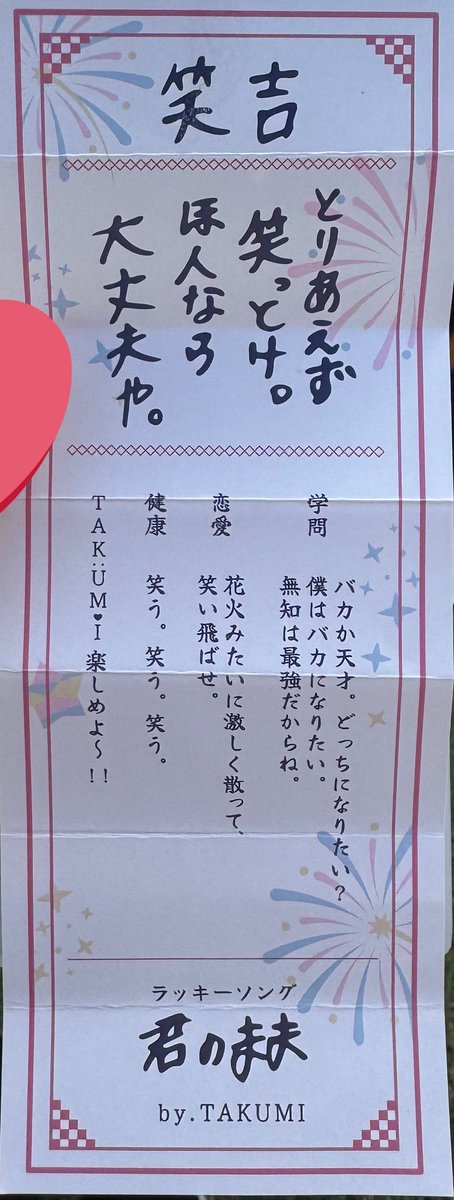 笑吉
とりあえず
笑っとけ。
ほんなら
大丈夫や。
学問
バカか天才。どっちになりたい?
僕はバカになりたい。
無知は最強だからね。
恋愛
花火みたいに激しく散って、
笑い飛ばせ。
健康
笑う。笑う。笑う。
TAK:UM♥I 楽しめよ〜!!
ラッキーソング
君のまま
by.TAKUMI